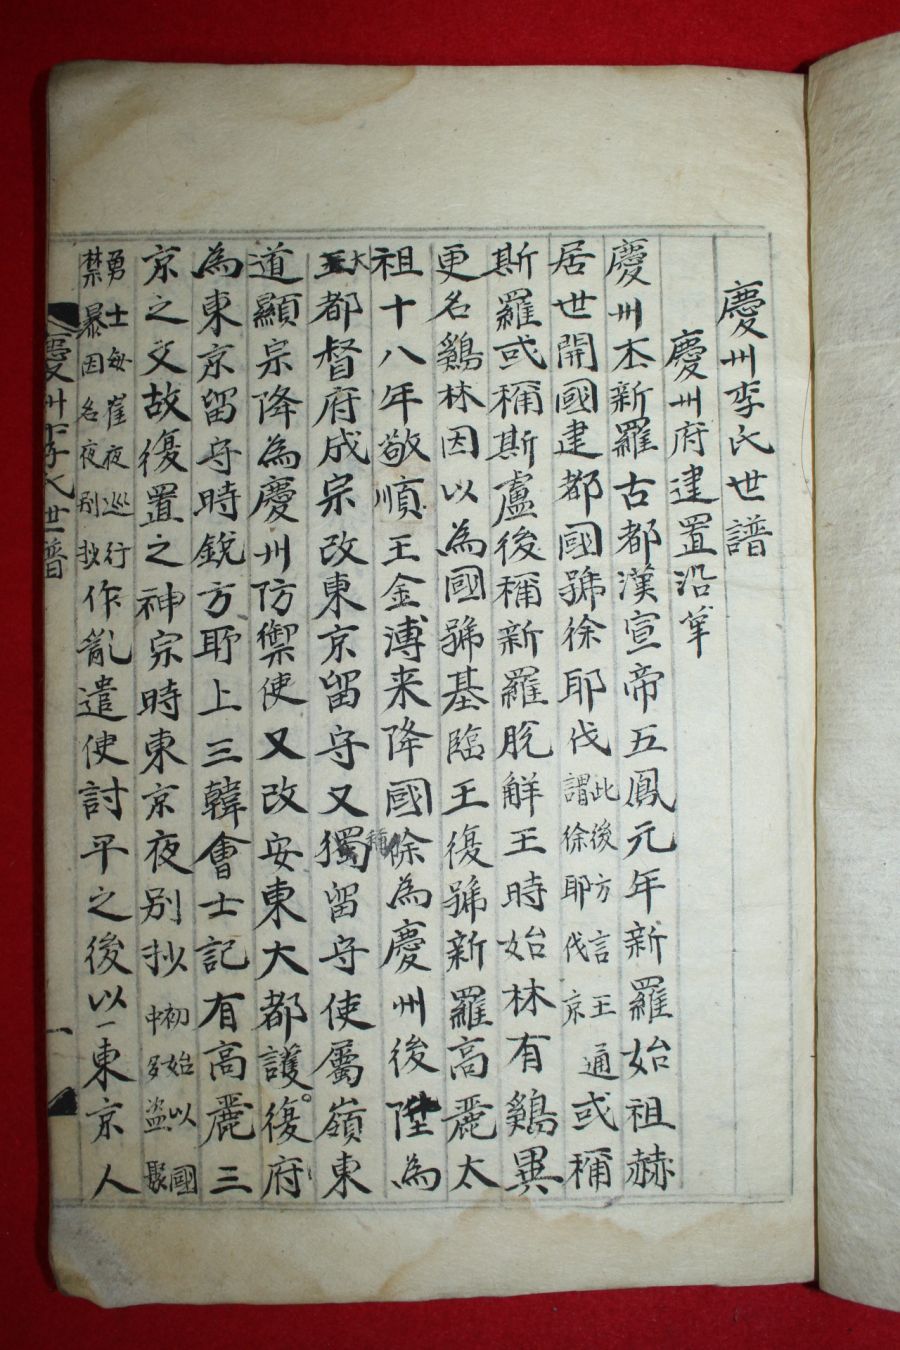 慶州李氏世譜
慶州府建置沿革
慶州本新羅古都漢宣帝五鳳元年新羅始祖赫
居世開國建都國號徐耶伐此後方言王通謂徐耶伐京或稱
斯羅或稱斯盧後稱新羅脫觧王時始林有鷄異
更名鷄林因以為國號基臨王復號新羅高麗太
祖十八年敬順王金溥来降國除為慶州後陞為
大都督府成宗改東京留守又稱留守使屬嶺東
道顯宗降為慶州防禦使又改安東大都護復府
為東京留守時銳方耶上三韓會士記有高麗三
京之文故復置之神宗時東京夜别抄初始以國中多盗聚
勇士每崔夜巡行禁暴因名夜别抄作亂遣使討平之後以東京人
慶州李氏世譜
一